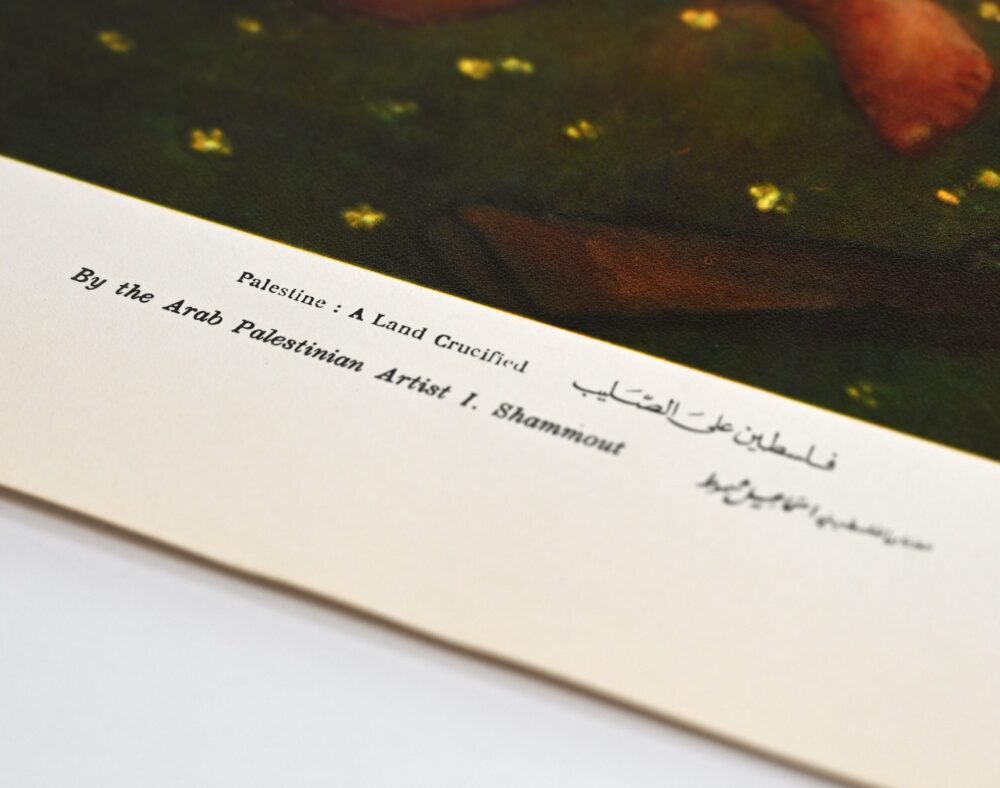 Palestine : A Land Crucified
By the Arab Palestinian Artist I. Shammout
فلسطين على الصّليب
اسماعيل شموط